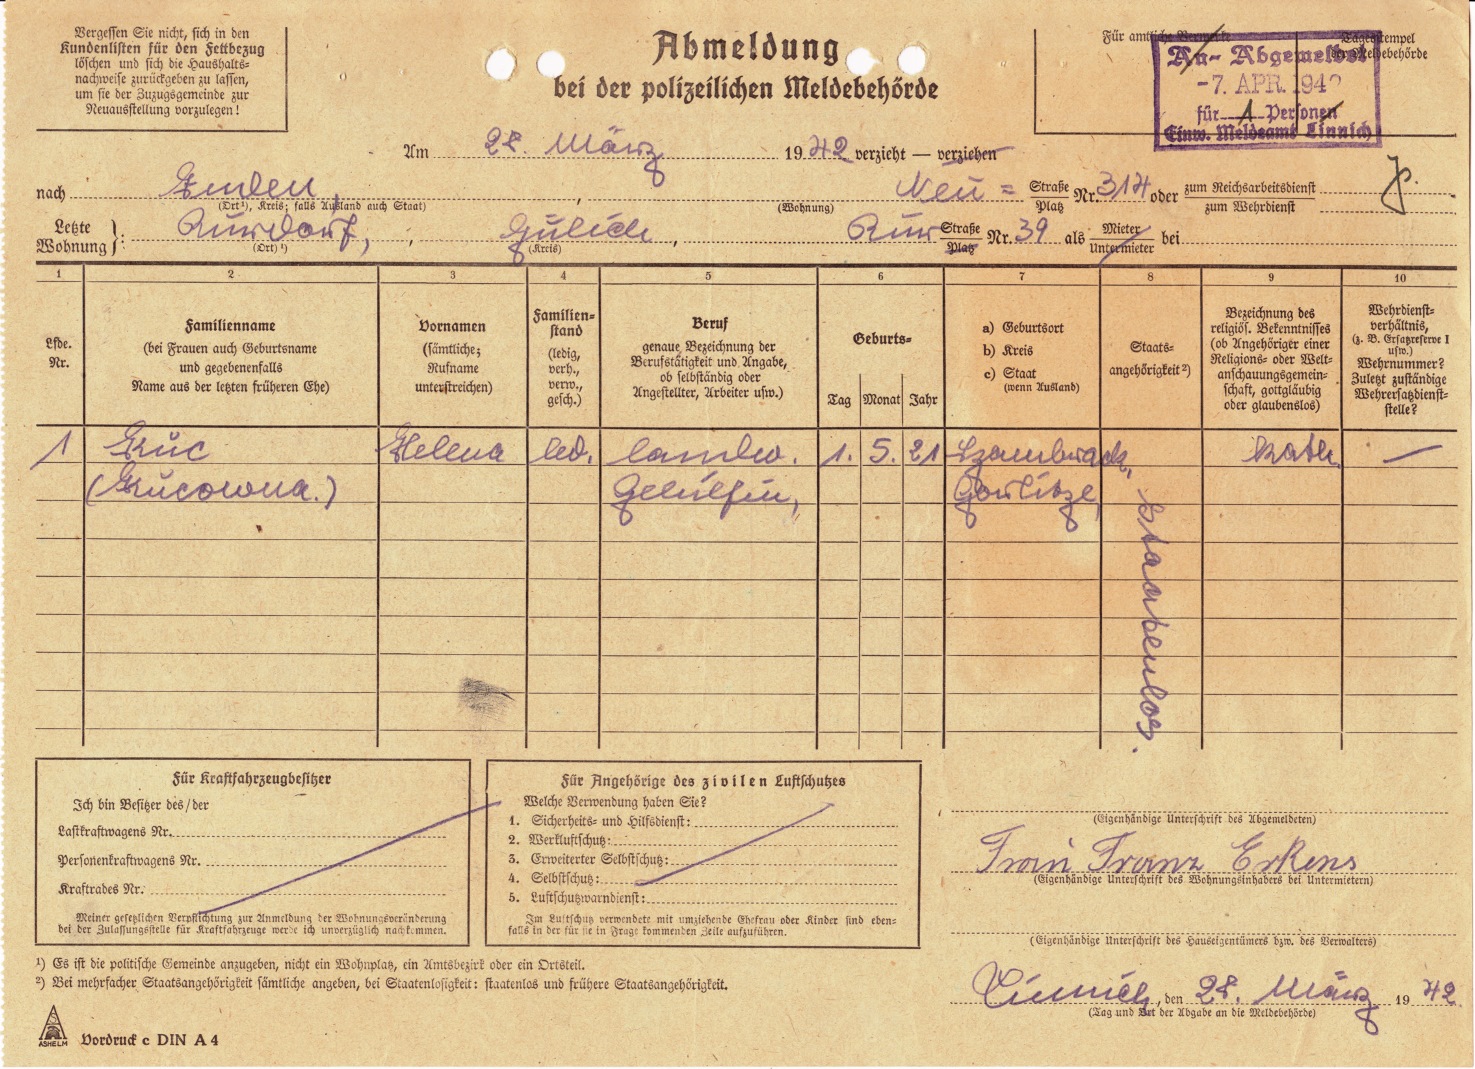 Vergessen Sie nicht, sich in den
Kundenlisten für den Fettbezug
löschen und sich die Haushalts-
nachweise zurückgeben zu lassen,
um sie der Zuzugsgemeinde zur
Neuausstellung vorzulegen!
Abmeldung
bei der polizeilichen Meldebehörde
Für amtliche Vermerke
Tagesstempel
der Meldebehörde
An- Abgemeldet
-7. APR. 1942
für 1 Personen
Einw. Meldeamt Linnich
Am 28. März 1942 verzieht — verziehen
nach Emden, (Wohnung) Neu= Straße Platz Nr. 314 oder zum Reichsarbeitsdienst
zum Wehrdienst
(Ort¹), Kreis; falls Ausland auch Staat)
Letzte Wohnung: Rurdorf, Jülich, Rur Straße Platz Nr. 39 als Mieter Untermieter bei
(Ort) ¹) (Kreis)
1 2 3 4 5 6 7 8 9 10
Lfde. Nr.
Familienname
(bei Frauen auch Geburtsname
und gegebenenfalls
Name aus der letzten früheren Ehe)
Vornamen
(sämtliche;
Rufname
unterstreichen)
Familien-
stand
(ledig,
verh.,
verw.,
gesch.)
Beruf
genaue Bezeichnung der
Berufstätigkeit und Angabe,
ob selbständig oder
Angestellter, Arbeiter usw.)
Geburts-
Tag Monat Jahr
a) Geburtsort
b) Kreis
c) Staat
(wenn Ausland)
Staats-
angehörigkeit ²)
Bezeichnung des
religiös. Bekenntnisses
(ob Angehöriger einer
Religions- oder Welt-
anschauungsgemein-
schaft, gottgläubig
oder glaubenslos)
Wehrdienst-
verhältnis,
(z. B. Ersatzreserve I
usw.)
Wehrnummer?
Zuletzt zuständige
Wehrersatzdienst-
stelle?
1 Helena led. landw. 1. 5. 21 kath. —
Gehilfin, Gorlitze,
staatenlos.
Für Kraftfahrzeugbesitzer
Ich bin Besitzer des/der
Lastkraftwagens Nr.
Personenkraftwagens Nr.
Kraftrades Nr.
Meiner gesetzlichen Verpflichtung zur Anmeldung der Wohnungsveränderung
bei der Zulassungsstelle für Kraftfahrzeuge werde ich unverzüglich nachkommen.
Für Angehörige des zivilen Luftschutzes
Welche Verwendung haben Sie?
1. Sicherheits- und Hilfsdienst:
2. Werkluftschutz:
3. Erweiterter Selbstschutz:
4. Selbstschutz:
5. Luftschutzwarndienst:
Im Luftschutz verwendete mit umziehende Ehefrau oder Kinder sind eben-
falls in der für sie in Frage kommenden Zeile aufzuführen.
(Eigenhändige Unterschrift des Abgemeldeten)
Frau Franz Erkens
(Eigenhändige Unterschrift des Wohnungsinhabers bei Untermietern)
(Eigenhändige Unterschrift des Hauseigentümers bzw. des Verwalters)
Linnich, den 28. März 1942
(Tag und Ort der Abgabe an die Meldebehörde)
¹) Es ist die politische Gemeinde anzugeben, nicht ein Wohnplatz, ein Amtsbezirk oder ein Ortsteil.
²) Bei mehrfacher Staatsangehörigkeit sämtliche angeben, bei Staatenlosigkeit: staatenlos und frühere Staatsangehörigkeit.
ASHELM
Vordruck c DIN A 4